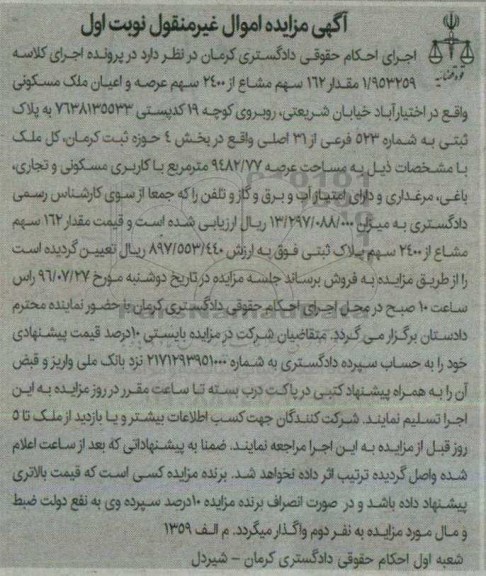 آگهی مزایده اموال غیرمنقول نوبت اول
اجرای احکام حقوقی دادگستری کرمان در نظر دارد در پرونده اجرای کلاسه
۱/۹۵۳۲۵۹ مقدار ۱۶۲ سهم مشاع از ۲۴۰۰ سهم عرصه و اعیان ملک مسکونی
قوه قضاییه
واقع در اختیارآباد خیابان شریعتی، روبروی کوچه ۱۹ کدپستی ۷۶۳۸۱۳۵۵۳۳ به پلاک
ثبتی به شماره ۵۲۳ فرعی از ۳۱ اصلی واقع در بخش ۴ حوزه ثبت کرمان، کل ملک
با مشخصات ذیل به مساحت عرصه ۹۴۸۲/۷۷ مترمربع با کاربری مسکونی و تجاری،
باغی، مرغداری و دارای امتیاز آب و برق و گاز و تلفن را که جمعا از سوی کارشناس رسمی
دادگستری به میزان ۱۳/۲۹۷/۰۸۸/۰۰۰ ریال ارزیابی شده است و قیمت مقدار ۱۶۲ سهم
مشاع از ۲۴۰۰ سهم پلاک ثبتی فوق به ارزش ۸۹۷/۵۵۳/۴۴۰ ریال تعیین گردیده است
را از طریق مزایده به فروش برساند جلسه مزایده در تاریخ دوشنبه مورخ ۹۶/۰۷/۲۷ راس
ساعت ۱۰ صبح در محل اجرای احکام حقوقی دادگستری کرمان با حضور نماینده محترم
دادستان برگزار می گردد. متقاضیان شرکت در مزایده بایستی ۱۰درصد قیمت پیشنهادی
خود را به حساب سپرده دادگستری به شماره ۲۱۷۱۲۹۳۹۵۱۰۰۰ نزد بانک ملی واریز و قبض
آن را به همراه پیشنهاد کتبی در پاکت درب بسته تا ساعت مقرر در روز مزایده به این
اجرا تسلیم نمایند. شرکت کنندگان جهت کسب اطلاعات بیشتر و یا بازدید از ملک تا ۵
روز قبل از مزایده به این اجرا مراجعه نمایند. ضمنا به پیشنهاداتی که بعد از ساعت اعلام
شده واصل گردیده ترتیب اثر داده نخواهد شد. برنده مزایده کسی است که قیمت بالاتری
پیشنهاد داده باشد و در صورت انصراف برنده مزایده ۱۰درصد سپرده وی به نفع دولت ضبط
و مال مورد مزایده به نفر دوم واگذار میگردد. م الف ۱۳۵۹
شعبه اول احکام حقوقی دادگستری کرمان - شیردل